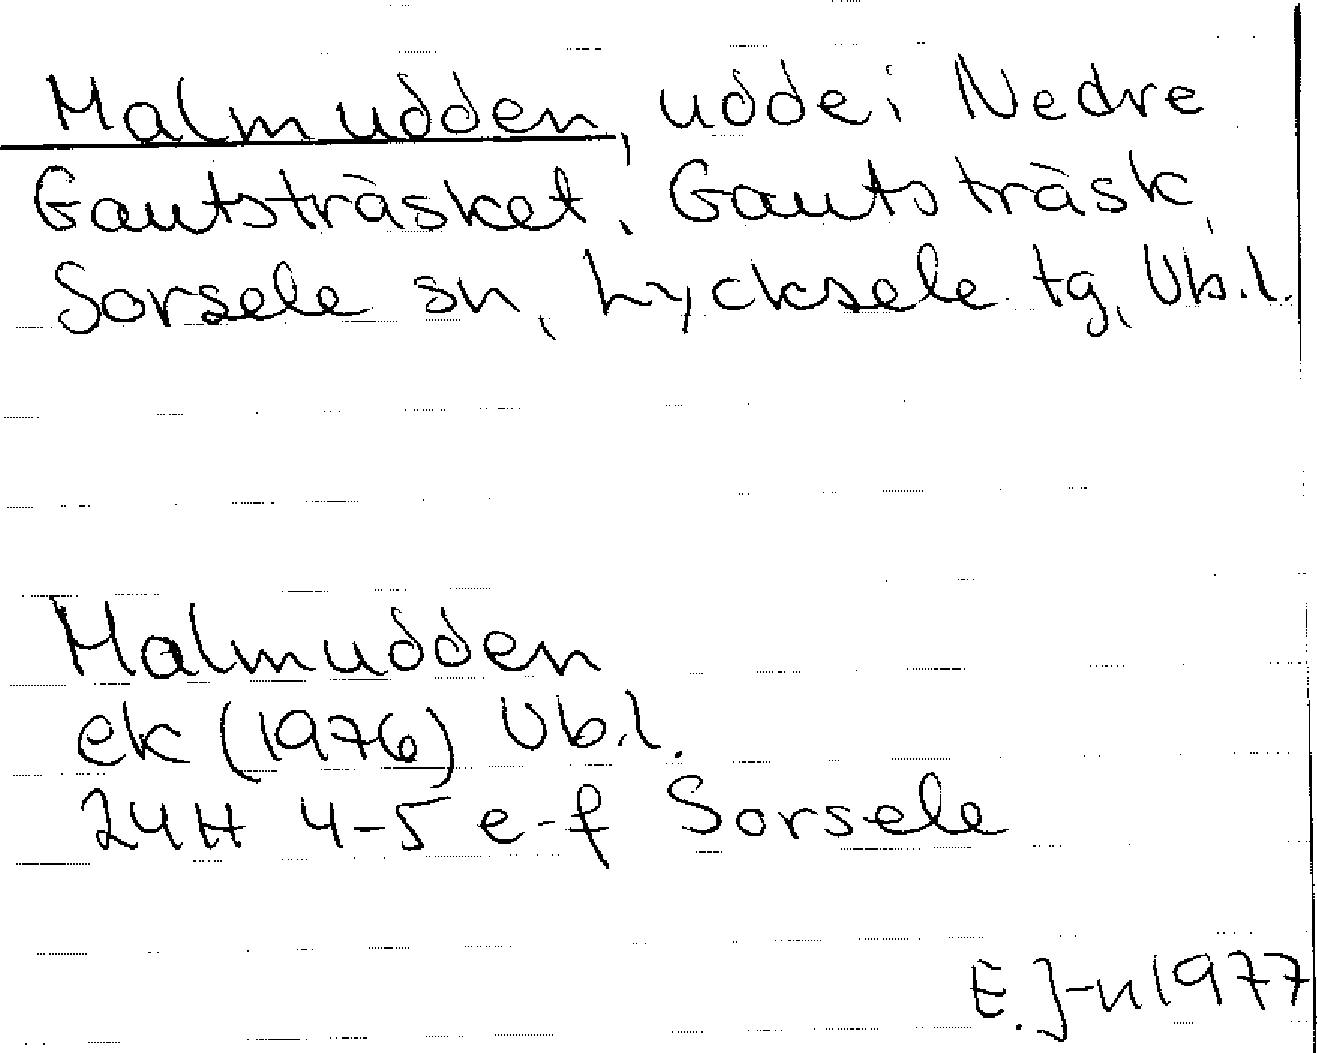 Malmudden, udde i Nedre
Gautsträsket, Gautsträsk,
Sorsele sn, Lycksele tg, Vb.l.
Malmudden
ek (1976) Vb.l.
24H 4-5 e-f Sorsele
E. J-n 1977